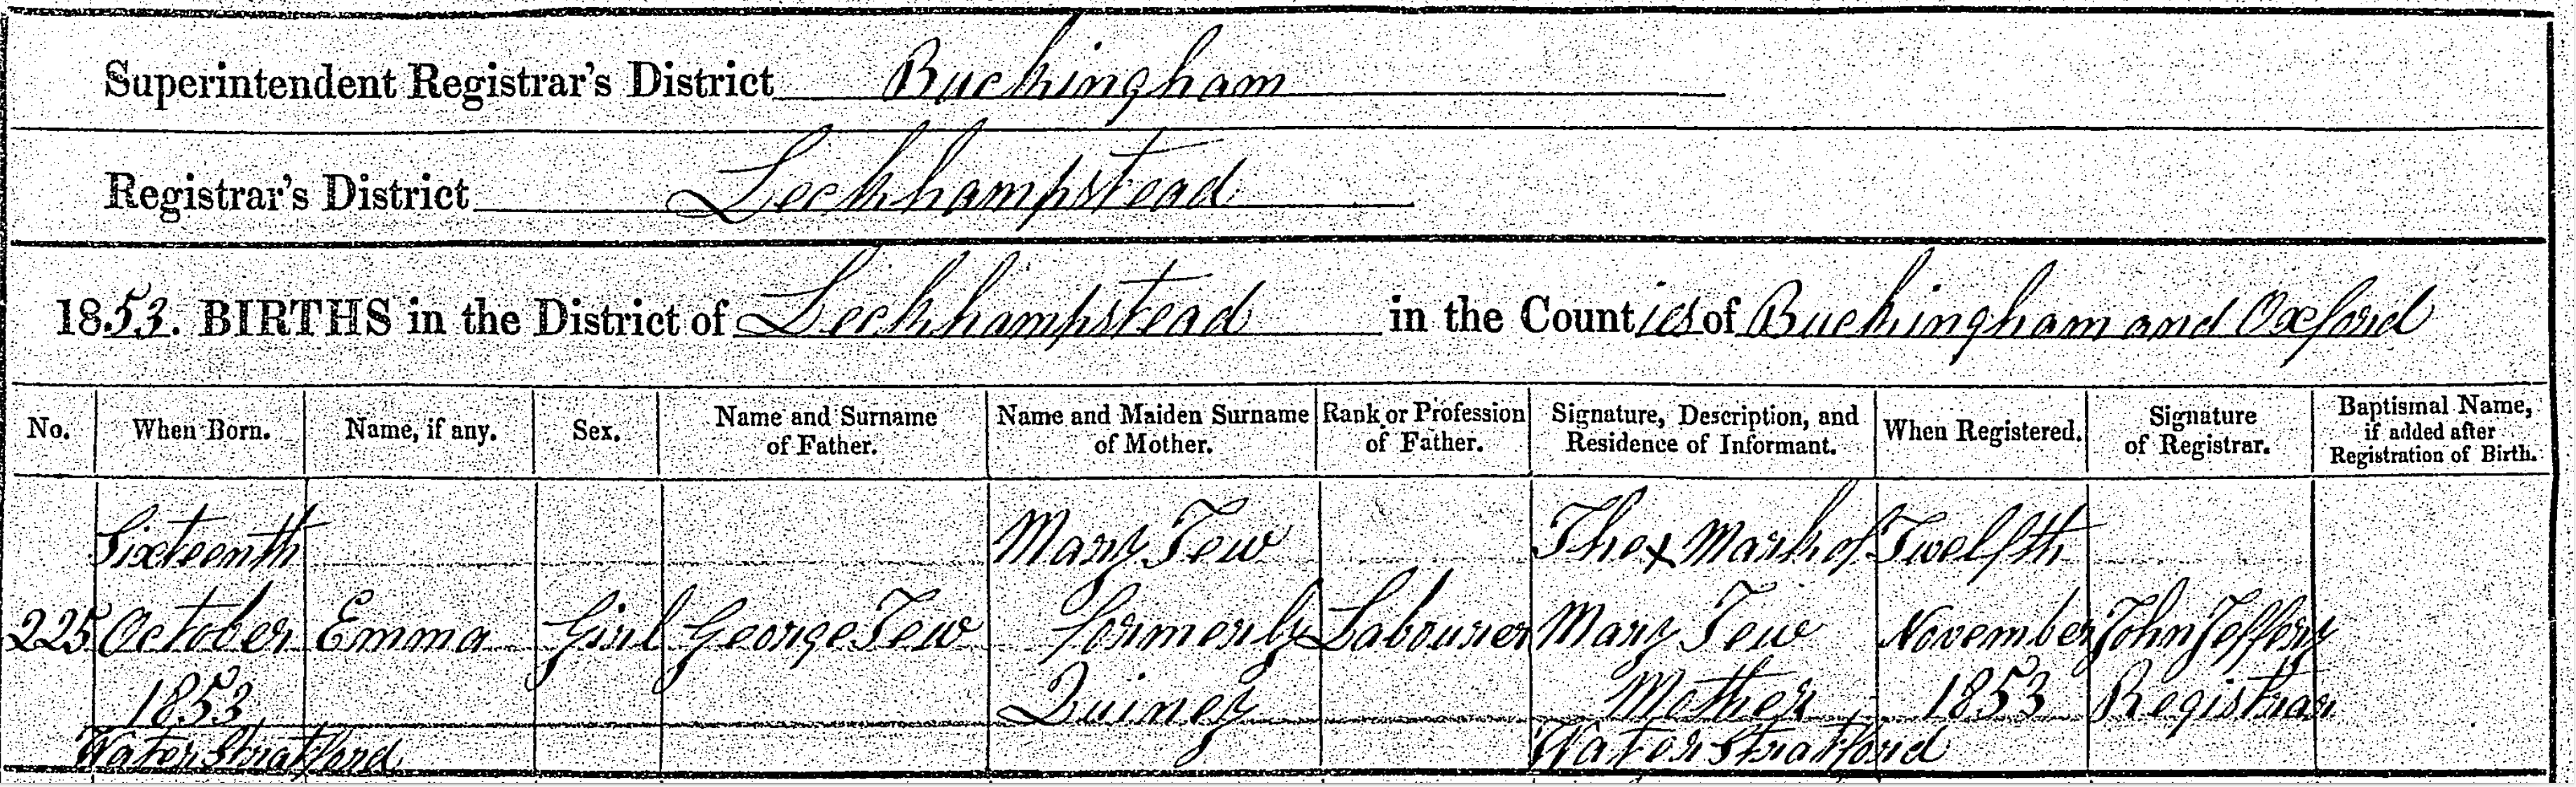 Superintendent Registrar's District Buckingham
Registrar's District Leckhampstead
1853. BIRTHS in the District of Leckhampstead in the Counties of Buckingham and Oxford
No. When Born. Name, if any. Sex. Name and Surname of Father. Name and Maiden Surname of Mother. Rank or Profession of Father. Signature, Description, and Residence of Informant. When Registered. Signature of Registrar. Baptismal Name, if added after Registration of Birth.
Sixteenth Mary Tew The x Mark of Twelfth
225 October Emma Girl George Tew formerly Labourer Mary Tew November John Jeffery
1853 Quiney Mother 1853 Registrar
Water Stratford Water Stratford